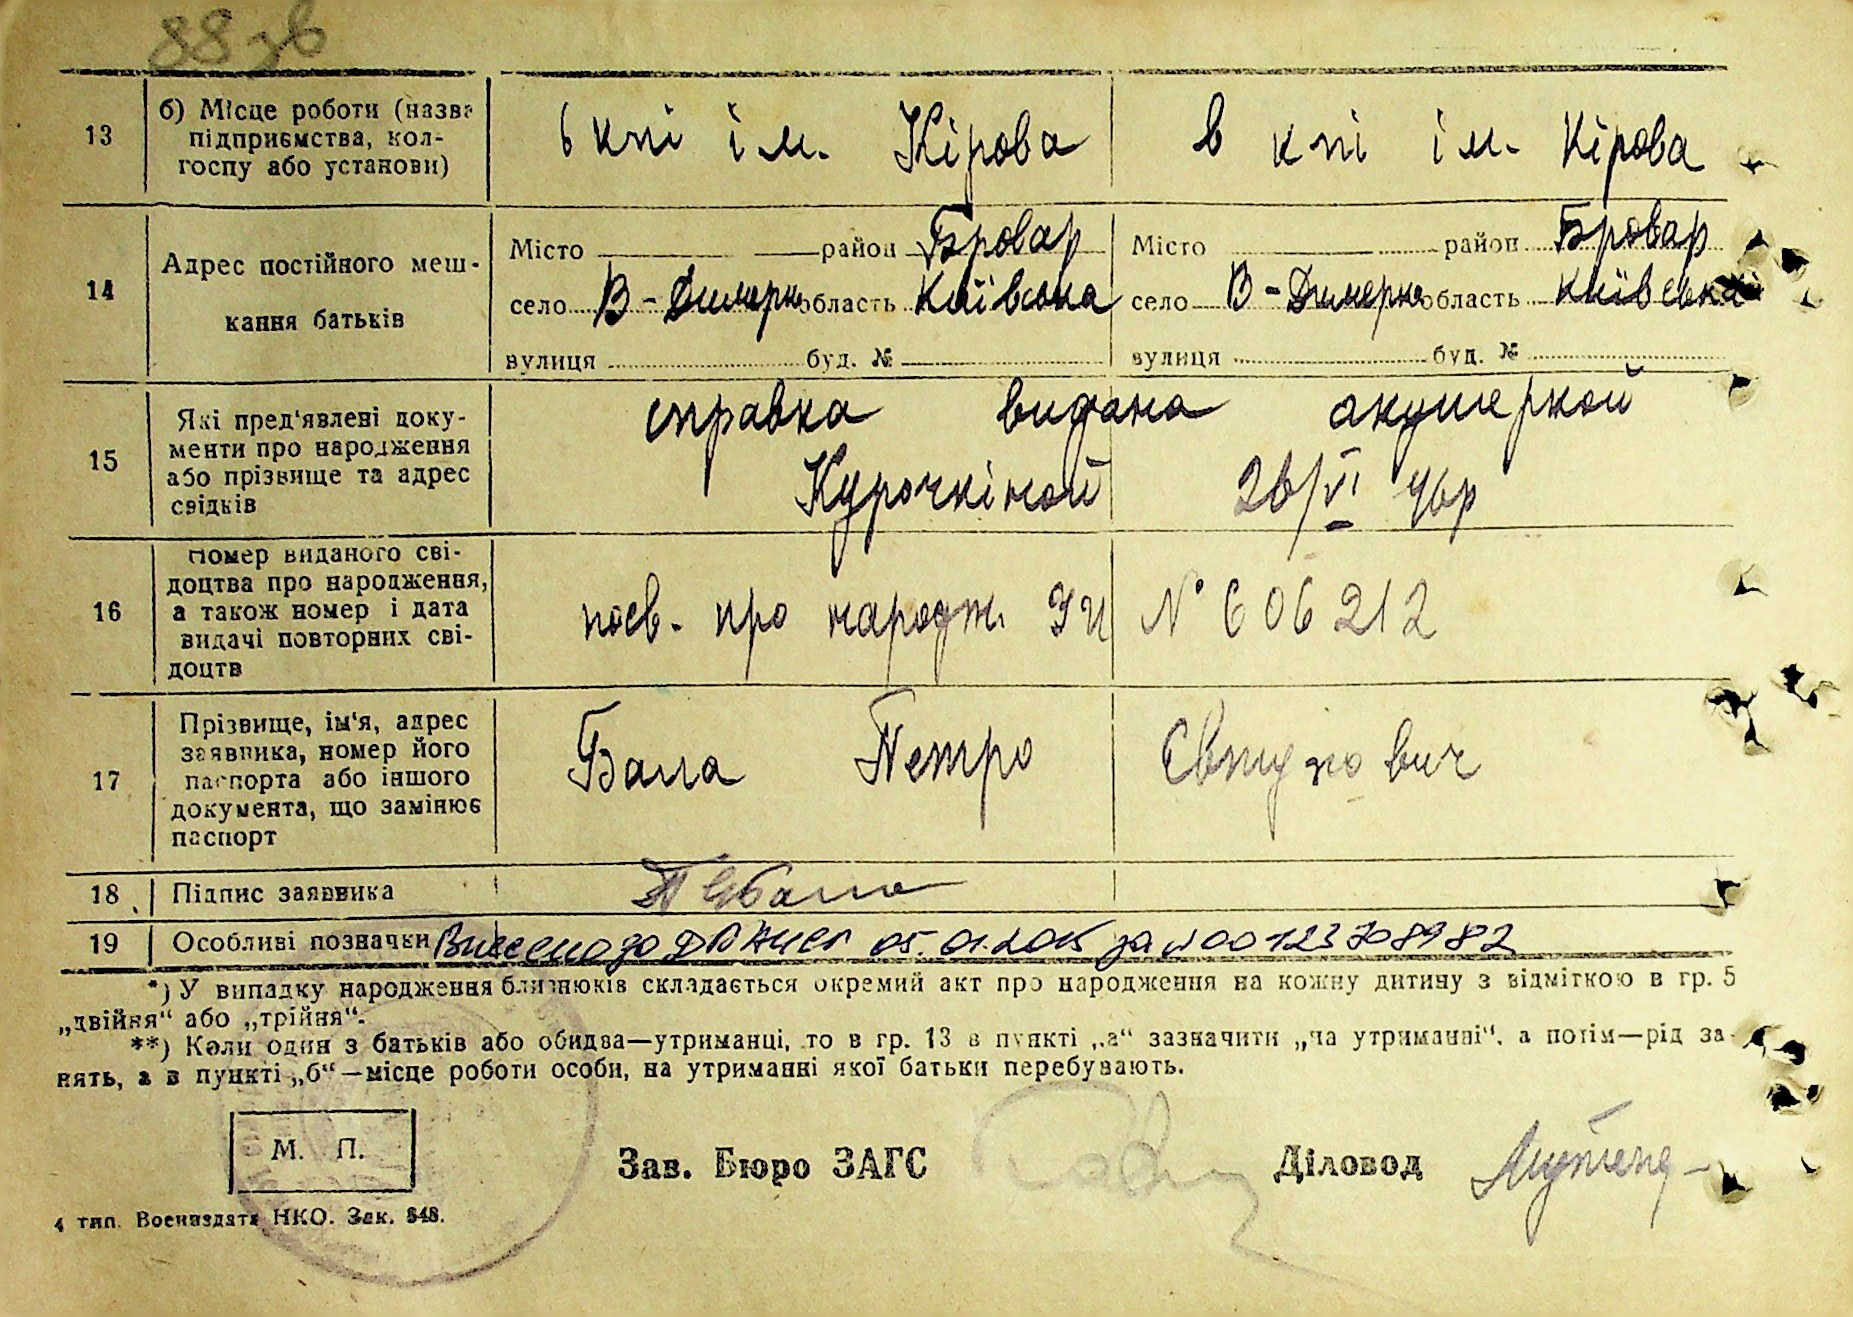 88 зв
13
б) Місце роботи (назва
підприємства, кол-
госпу або установи)
в кпі ім. Кірова
в кпі ім. Кірова
14
Адрес постійного меш-
кання батьків
Місто район Бровар
село В-Димерка область Київська
вулиця буд. №
Місто район Бровар
село В-Димерка область Київська
вулиця буд. №
15
Які пред'явлені доку-
менти про народження
або прізвище та адрес
свідків
справка видана акушеркой
Курочкіной 26/VI 46р
16
Номер виданого сві-
доцтва про народження,
а також номер і дата
видачі повторних сві-
доцтв
посв. про народж. УЧ № 606212
17
Прізвище, ім'я, адрес
заявника, номер його
паспорта або іншого
документа, що замінює
паспорт
Бала Петро Євтухович
18
Підпис заявника
19
Особливі позначки Внесено до ДРАЦСГ 05.01.2015 за №00123708982
*) У випадку народження близнюків складається окремий акт про народження на кожну дитину з відміткою в гр. 5
„двійня“ або „трійня“.
**) Коли один з батьків або обидва—утриманці, то в гр. 13 в пункті „а“ зазначити „на утриманні“, а потім—рід за-
нять, а в пункті „б“—місце роботи особи, на утриманні якої батьки перебувають.
М. П.
Зав. Бюро ЗАГС
Діловод
4 тип. Воениздата НКО. Зак. 848.